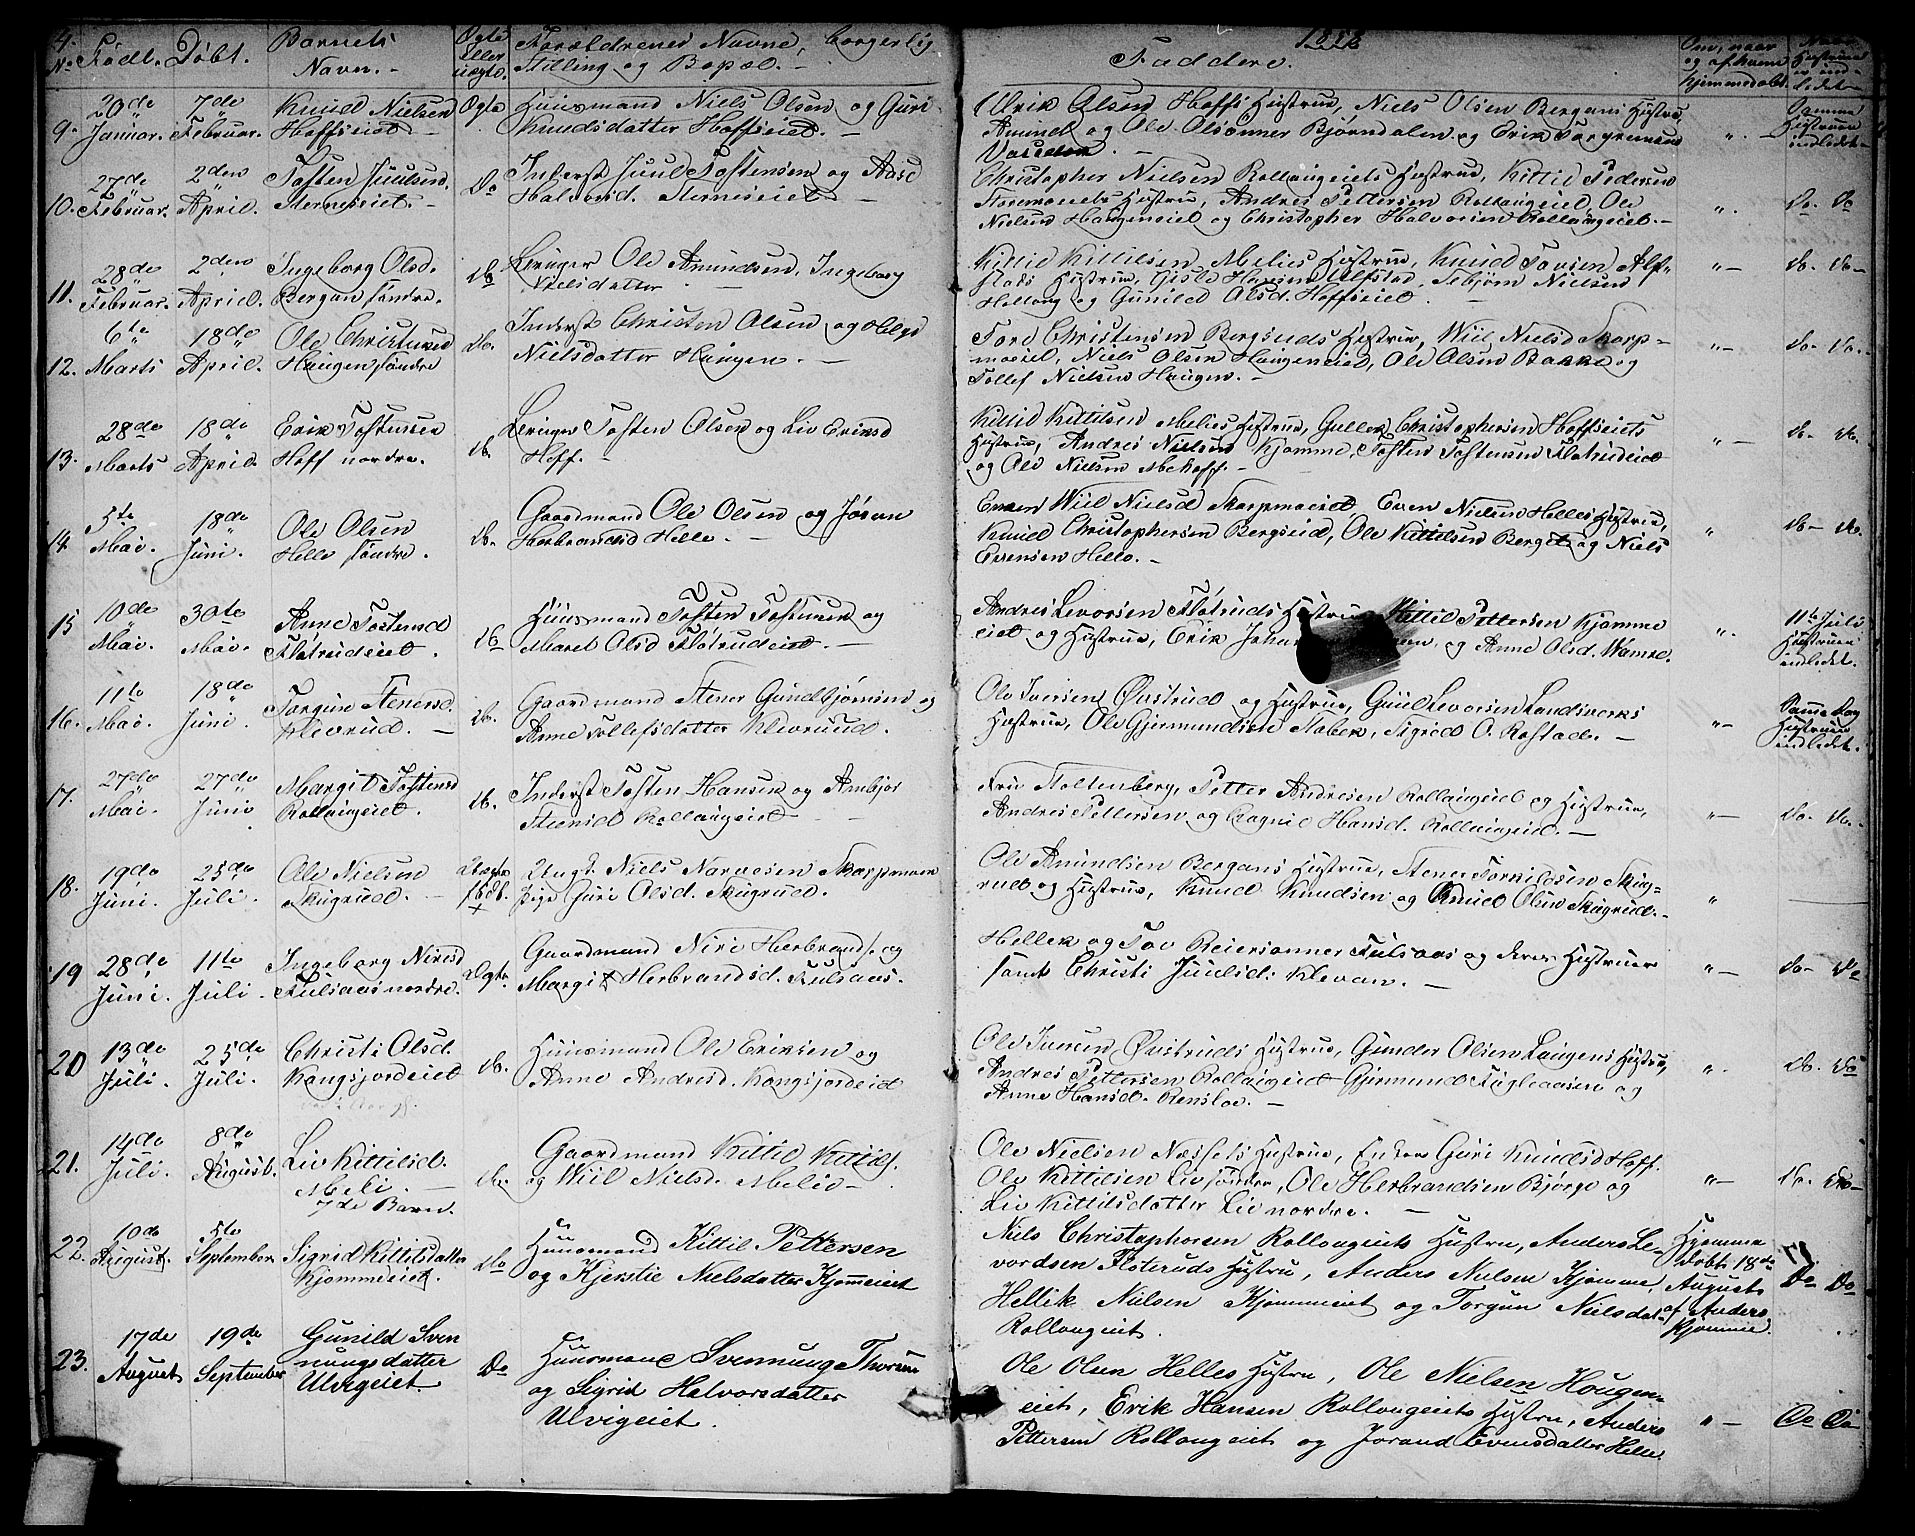 4.
No.
Födt.
Döbt.
Barnets
Navn.-
Ægte
eller
uægte.
Forældrenes Navne, borgerlig
Stilling og Bopæl.-
Faddere.
Om, naar
og af hvem
hjemmedøbt.
9.
20de
Januar.
7de
Februar.
Knud Nielsen
Hoffseiet.
Ægte
Huusmand Niels Olsen og Guri
Knudsdatter Hoffseiet.-
Erik Olsen Hoffs Hustrue, Niels Olsen Bergans Hustru,
Amund og Ole Olsönner Bjørndalen og Erik
"-
Samme
Hustruen
indledet-
10.
27de
Februar.
2den
April.
Tosten Juulsen
Sterneseiet.-
Do
Inderst Juul Tostensen og Aase
Halvorsd. Sterneseiet -
Christopher Nielsen Rollaugeiets Hustrue, Kittil Pedersen
Hustrue, Andres Pettersen Rollaugeiet, Ole
Nielsen Haugeneiet og Christopher Halvorsen Rollaugeiet.-
".
do. do
11.
28de
Februar.
2den
April.
Ingeborg Olsd.
Bergan søndre.
do
Leruger Ole Amundsen, Ingeborg
Nielsdatter -
Kittil Kittilsen Melies Hustrue, Knud Tovsen
Hustrue, Gisle Hansen Ulfstad, Tebjørn Nielsen
og Gunild Olsd. Hoffseiet.
"-
do. do-
12.
6te
Marts
18de
April.
Ole Christensen
Haugen søndre
do.
Inderst Christen Olsen og Helge
Nielsdatter Haugen.-
Tore Christensen Bergseieds Hustrue, Wiil Nielsd Skarp-
moeiet, Niels Olsen Haugeneiet, Ole Olsen Bakke og
Tollef Nielsen Haugen.-
"-
do. do.-
13.
28de
Marts
18de
April.
Erik Tostensen
Hoff nordre.
do.
Leruger Tosten Olsen og Liv Eriksd
Hoff.-
Kittil Kittilsen Melies Hustrue, Gullek Christophersen Hoffseiets
Hustrue, Andres Nielsen Kjomme, Tosten Tostensen Flotrudeiet
og Ole Nielsen Mehoff.-
"-
do- do.
14.
5te
Mai.
18de
Juni.
Ole Olsen
Helle søndre.
do.
Gaardmand Ole Olsen og Jøran
Herbrandsd Helle.-
Wiil Nielsd Skarpmoeiet Even Nielsen Helles Hustrue,
Knud Christophersen Bergseid, Ole Kittilsen Berget og Niels
Evensen Helle.-
"
do- do.
15
10de
Mai.
30te
Mai.
Anne Tostensd
Flotrudeiet.
do
Huusmand Tosten Tostensen og
Maret Olsd Flotrudeiet.-
Andres Levorsen Flotruds Hustrue Kittil Pettersen Kjomme
eiet og Hustrue, Erik og Anne Olsd.
".
11te Juli
Hustruen
indledet.
16.
11te
Mai.
18de
Juni.
Torgun Stenersd.
Klevrud.-
do.
Gaardmand Stener Gundbjørnsen og
Anne Tollefsdatter Klevruud.
Ole Iversen Øvstrud og Hustrue, Guul Levorsen Landsverks
Hustrue, Ole Gjermundsen Stabek, Sigrid O. Rostad.-
"-
Samme Dag
Hustruen
indledet.
17.
27de
Mai.
27de
Juni
Margit Tostensd
Rollaugeiet.
do.
Inderst Tosten Hansen og Ambjør
Steensd Rollaugeiet -
Fru Stoltenberg, Petter Andresen Rollaugeiet og Hustrue,
Andres Pettersen og Ragnil Hansd. Rollaugeiet.-
"-
do. do.
18.
19de
Juni.
25de
Juli.
Ole Nielsen
Skugrud.-
Uægte
Ungk. Niels Narvesen Skarpmoen
Pige Guri Olsd. Skugrud.
Ole Amundsen Bergans Hustrue, Stener Torkildsen Skug-
rud og Hustrue, Knud Knudsen og Knud Olsen Skugrud.-
"
19
28de
Juni.
11te
Juli.
Ingeborg Nirisd
Fulsaas nordre.
Ægte.
Gaardmand Niri Herbrands. og
Margit Herbrandsd. Fulsaas.
Hellek og Tov Reiersønner Fulsaas og deres Hustruer
samt Christi Juulsd. Klevan.-
"-
do- do
20
13de
Juli.
25de
Juli.
Christi Olsd.
Kongsjordeiet
do.
Huusmand Ole Eriksen og
Anne Andresd. Kongsjordeid
Ole Iversen Øvstruds Hustrue, Gunder Olsen Laugens Hustrue,
Andres Pettersen Rollaugeiet Gjermund Fugleaasen og
Anne Hansd. Renslos.-
".
do. do
21.
14de
Juli.
8de
August.
Liv Kittilsd.
Meli.-
7de Barn.
do.
Gaardmand Kittil Kittils.
og Wiil Nielsd. Melie -
Ole Nielsen Næssets Hustrue, Enken Guri Knudsd Hoff.
Ole Kittilsen Liv søndre, Ole Herbrandsen Bjørge og
Liv Kittilsdatter Liv nordre.-
"-
do. do-
22.
10de
August.
5te
September
Sigrid Kittilsdatter
Kjommeiet.
do
Huusmand Kittil Pettersen
og Kjerstie Nielsdatter Kjomeiet
Niels Christophersen Rollaugeiets Hustru, Anders Le-
vordsen Floteruds Hustru, Anders Nielsen Kjomme,
Hellik Nielsen Kjommeiet og Torgun Nielsdat.
Rollougeiet.
Hjemme
døbt 18de
August
af Anders
Kjomme.
Do Do
23.
17de
August
19de
September
Gunild Sven
nungsdatter
Ulvigeiet
Do
Huusmand Svennung Thorsen
og Sigrid Halvorsdatter
Ulvigeiet.
Ole Olsen Helles Hustru, Ole Nielsen Hougen-
eiet, Erik Hansen Rollougeiets Hustru, Anders
Pettersen Rollougeiet og Jorand Evensdatter Helle.
"-
Do Do